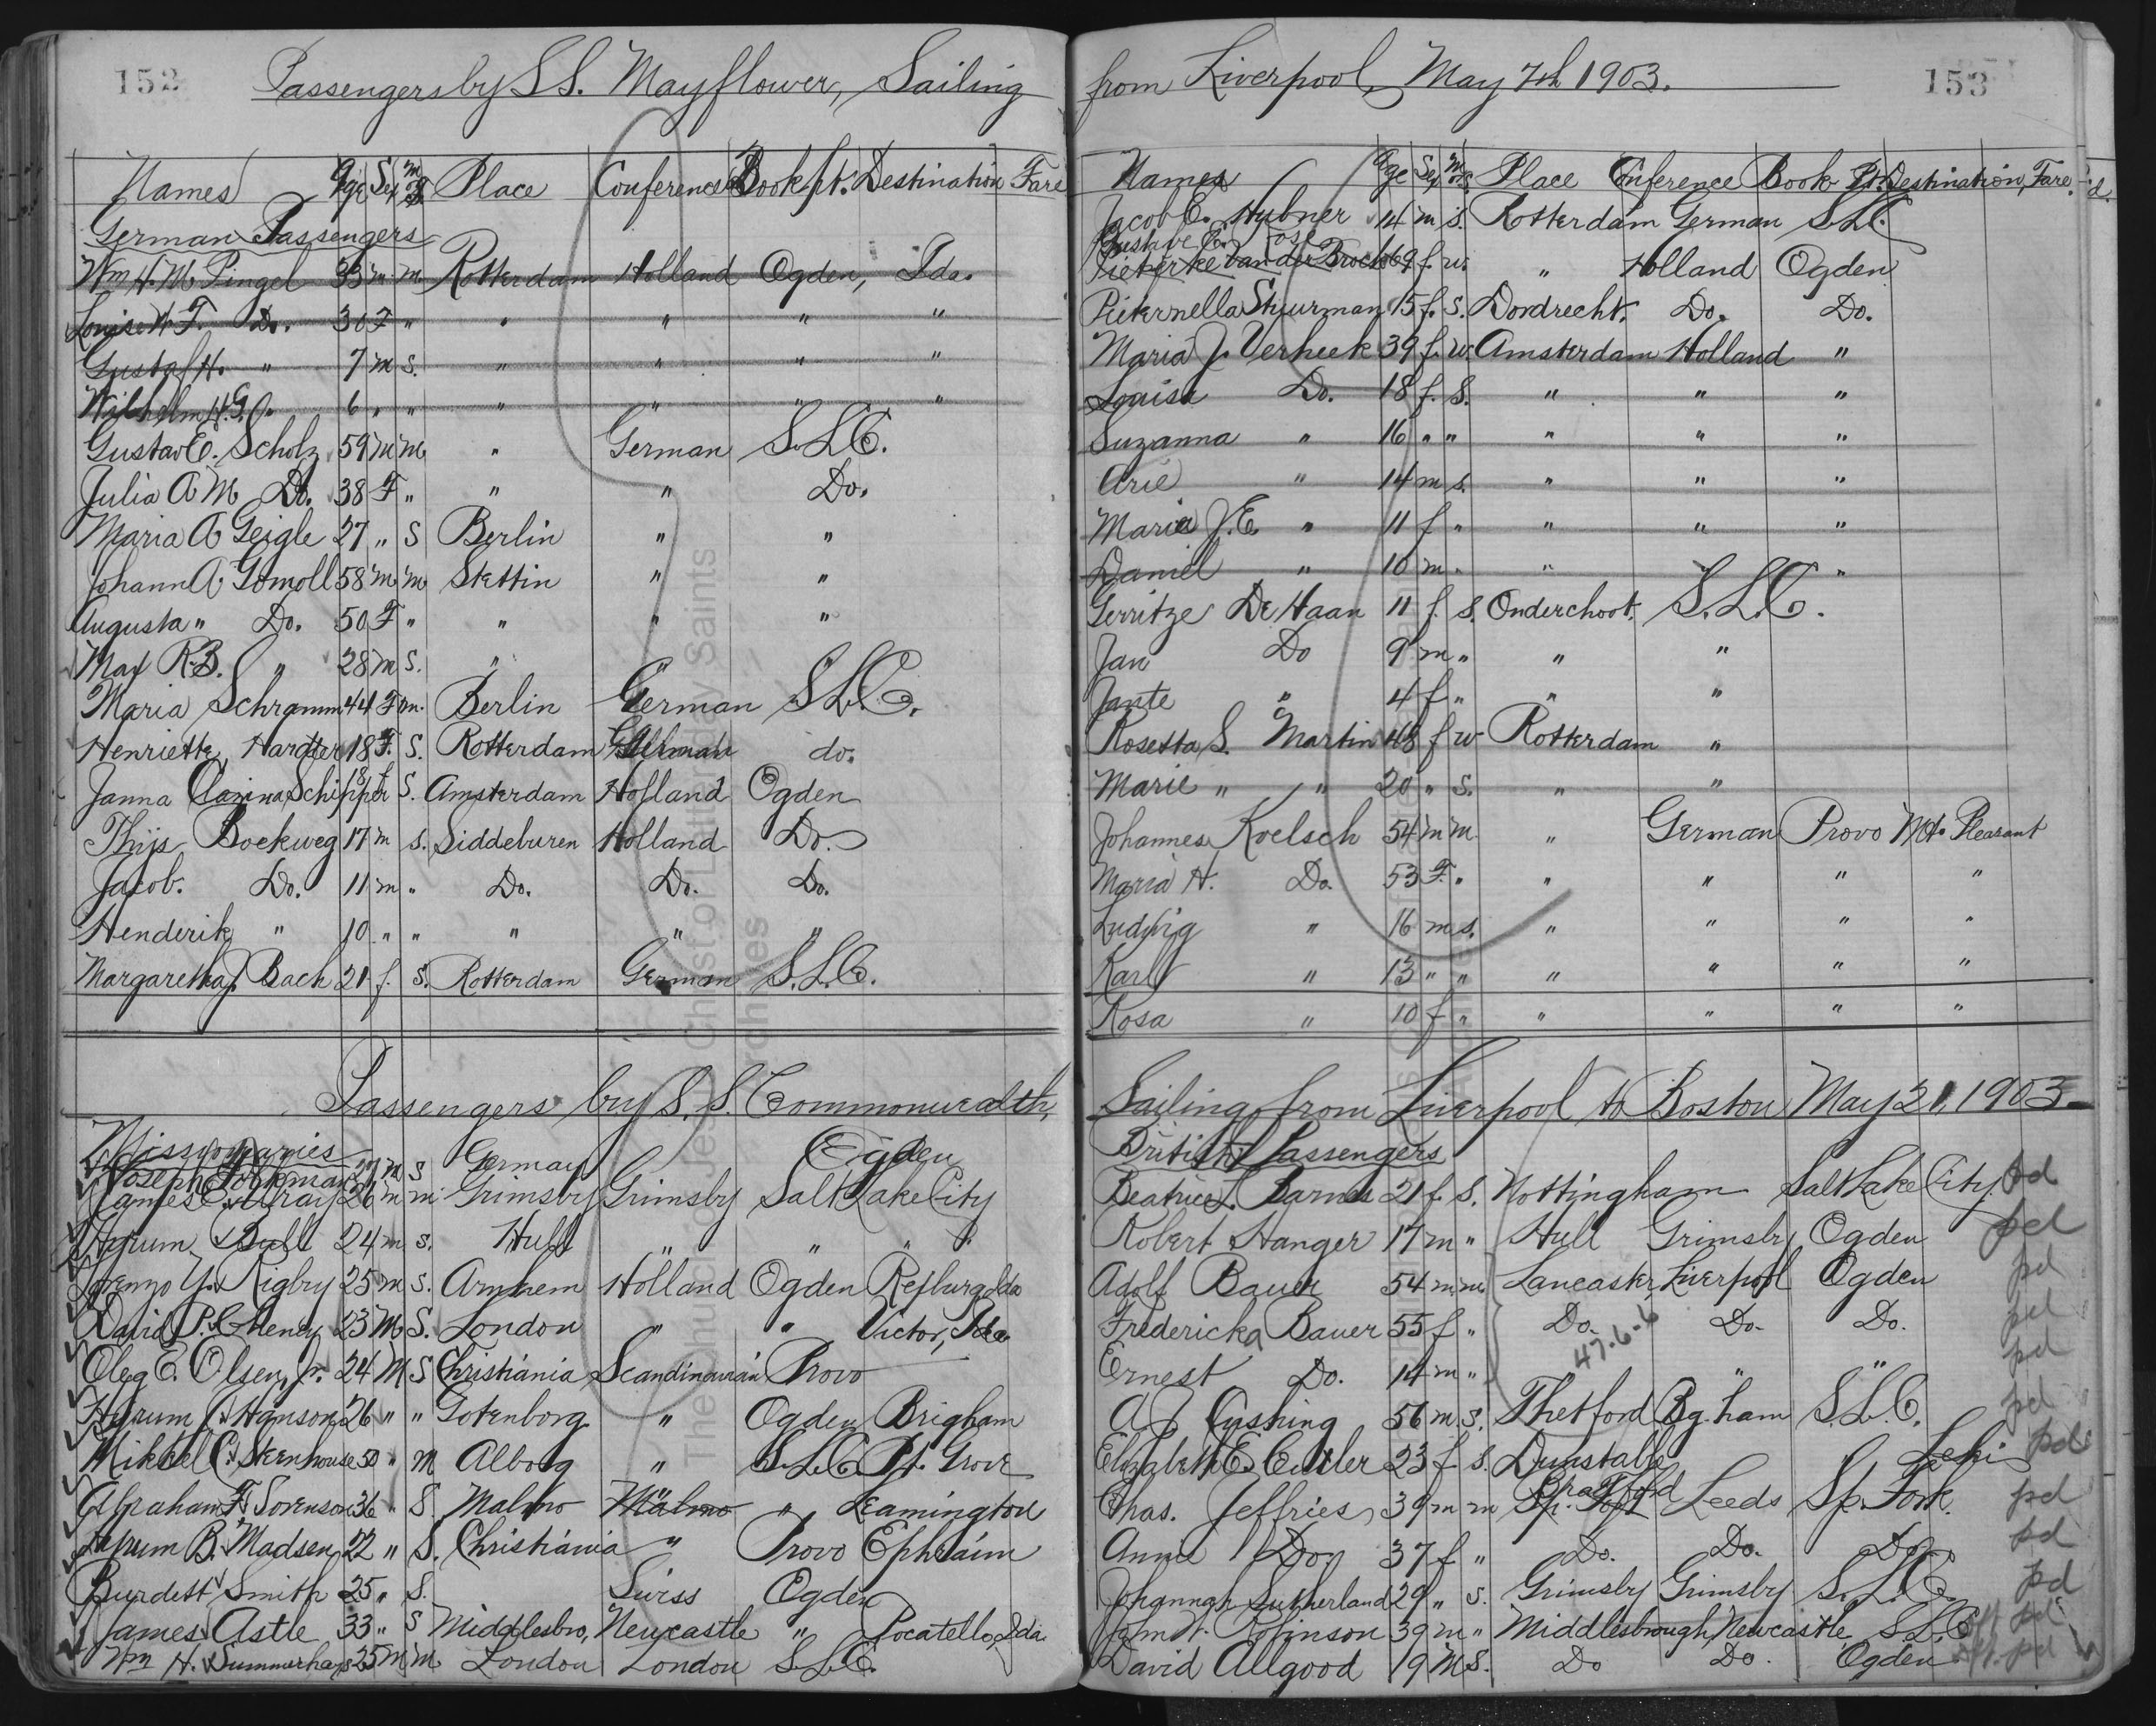 152
Passengers by S.S. Mayflower, Sailing
Names Age Sex m S Place Conference Book pt. Destination Fare
German Passengers
Wm H. M. Pingel 33 m m Rotterdam Holland Ogden, Ida.
Louise W. F. Do. 30 F " " " " "
Gustaf H. " 7 m s. " " " "
Wilhelm H. G. " 6 " " " " " "
Gustav E. Scholz 59 m m " German S.L.C.
Julia A M Do. 38 F " " " Do.
Maria A Geigle 27 " S Berlin " "
Johann A Gomoll 58 m m Stettin " "
Augusta " Do. 50 F " " " "
Max R.B. " 28 m s. " "
Maria Schramm 44 F m. Berlin German S.L.C.
Henriette Harder 18 F. S. Rotterdam German do.
Janna Carina Schipper 18 f S. Amsterdam Holland Ogden
Thijs Boekweg 17 m s. Siddeburen Holland Do.
Jacob. Do. 11 m " Do. Do. Do.
Henderik " 10 " " " " "
Margaretha J. Bach 21 f. S. Rotterdam German S.L.C.
Passengers by S. S. Commonwealth,
Missionaries
Joseph 27 m s German Ogden
James C. Wray 26 m m Grimsby Grimsby Salt Lake City
Hyrum Bull 24 m s. Hull " " " "
Lorenzo Y. Rigby 25 m s. Arnhem Holland Ogden Rexburg Ida
David P. Cheney 23 M S. London " " Victor, Ida.
Oleg E. Olsen, Jr. 24 M S Christiania Scandinavian Provo
Hyrum J. Hanson 26 " " Gotenborg " Ogden Brigham
Mikkel C. Steenhouse 50 " m Alborg " S.L.C. Pl. Grove
Abraham F. Sorenson 36 " S. Malmo Malmo " Leamington
Hyrum B. Madsen 22 " S. Christiania " Provo Ephraim
Burdett Smith 25 " S. Swiss Ogden
James Astle 33 " S Middlesbro, Newcastle " Pocatello, Ida.
Wm H. Summerhays 25 m m London London S.L.C.
153
from Liverpool, May 7th 1903.
Names Age Sex m or S Place Conference Book Pt. Destination, Fare.
Jacob E. Hubner 14 m s. Rotterdam German S.L.C.
Gustave E.
Pieterke van der Broek 69 f. w. " Holland Ogden
Pieternella Stuurman 15 f. s. Dordrecht. Do. Do.
Maria J. Verheek 39 f. w. Amsterdam Holland "
Louisa Do. 18 f. s. " " "
Suzanna " 16 " " " " "
Arie " 14 m s. " " "
Maria J. E. " 11 f " " " "
Daniel " 10 m " " " "
Gerritze De Haan 11 f. s. Onderchoot. S.L.C.
Jan Do 9 m " " "
Jante " 4 f " " "
Rosetta S. Martin 48 f w Rotterdam "
Marie " " 20 " s. " "
Johannes Koelsch 54 m m " German Provo Mt. Pleasant
Maria H. Do. 53 F. " " " " "
Ludwig " 16 m s. " " " "
Karl " 13 " " " " " "
Rosa " 10 f " " " " "
Sailing from Liverpool to Boston May 21, 1903.
British Passengers
Beatrice L. Barnes 21 f. S. Nottingham Salt Lake City. pd
Robert Hanger 17 m " Hull Grimsby Ogden pd
Adolf Bauer 54 m m Lancaster, Liverpool Ogden pd
Fredericka Bauer 55 f " Do. Do. Do. pd
47.6-6
Ernest Do. 14 m " " " pd
A J Cushing 56 m s. Thetford Bg.ham S.L.C. pd
Elizabeth E. Cutler 23 f s. Dunstable Lehi pd
Chas. Jeffries 39 m m Bradford Leeds Sp. Fork. pd
Annie Do. 37 f " Do. Do. Do. pd
Johannah Sutherland 29 " s. Grimsby Grimsby S.L.C. pd
John W. Robinson 39 m " Middlesbrough, Newcastle S.L.C. pd
David Allgood 19 M S. Do Do. Ogden pd